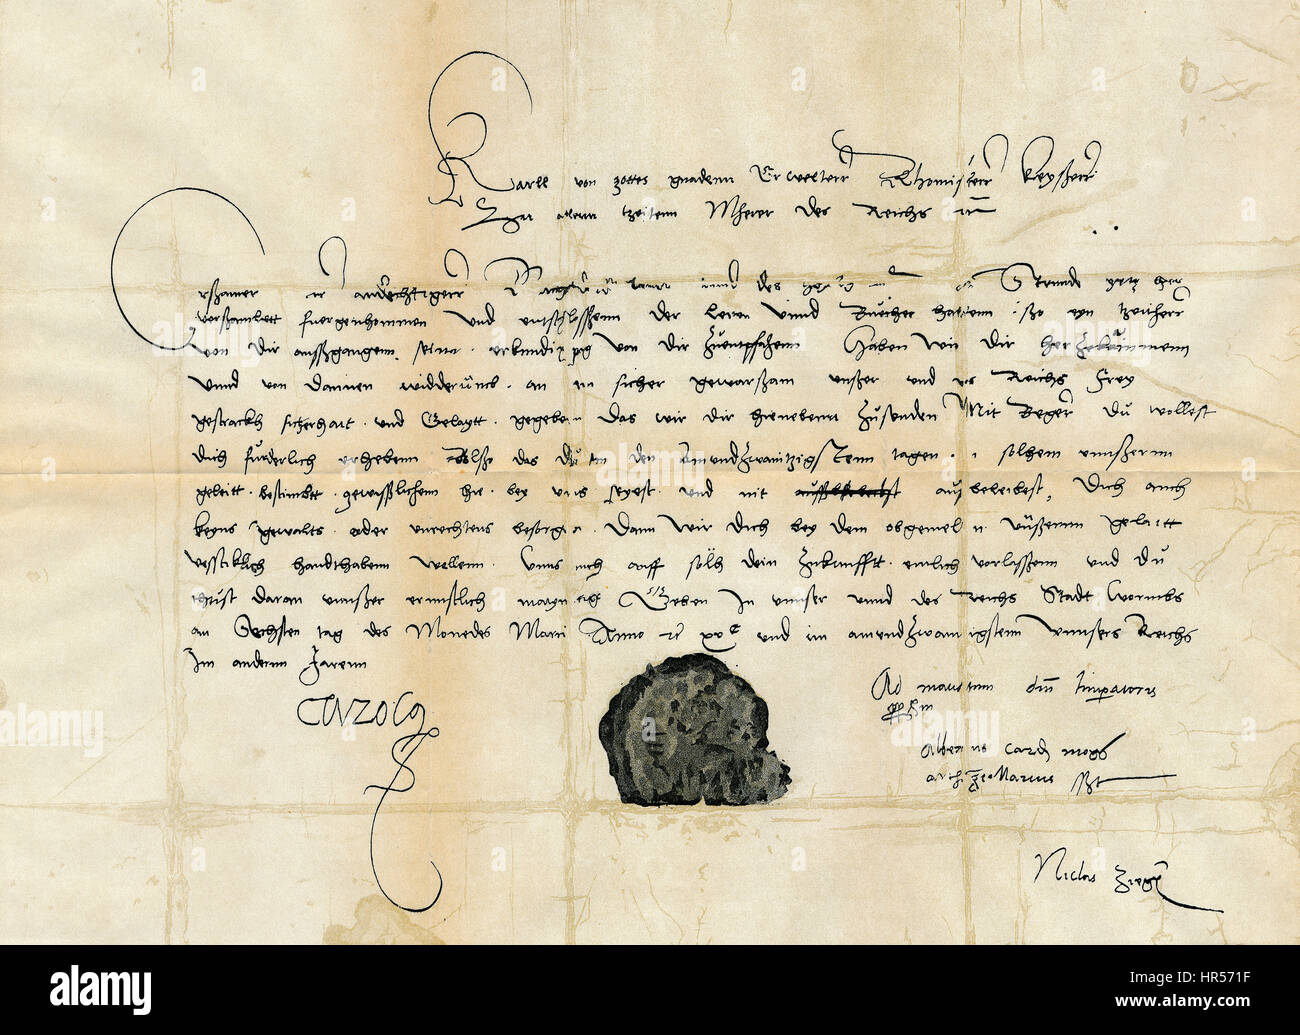 Karll von gottes gnadenn Erwelterr Rhomischerr Keyßerr
Zu allenn tzeitenn Mherer des Reichs
Ersamer andechtigerr des Reichs Stennde ytzt hie
versamlett fuergenhommen und entschlossenn der leren unnd Buecher halbenn so eyn tzeither
von dir ausßgangenn seinn erkundigung von dir Zuentpfahenn Haben wir dir herZukummenn
unnd von dannen widderumb an sicher gewarßam unßer und des Reichs Frey
gestrackh sicherhait und Gelaytt gegeben Das wir dir hienebenn Zusenden Mit Beger Du wollest
dich furderlich erhebenn Alßo das du in den ainundzwaintzigsten tagen in solhem unnßerm
gelaitt bestimbtt gewißlichenn hie bey uns seyest und nit ausbleibest, Dich auch
keyns gewalts oder unrechtens besorgen Dann wir dich bey dem obgemelten unßerm gelaitt
vestiklich handthabenn wellenn Unns auch auff solh dein Zukunfftt entlich verlassenn und du
thust daran unnßer ernnstlich maynung Geben In unnser unnd des Reichs Stadt Wormbs
an Sechsten tag des Monedes Marcii Anno xv und im ainundzwanntzigstenn Unnsers Reichs
Im andernn Jarenn
Carolus
Ad mandatum domini Imperatoris
pprium
Albertus Card mogs
archicancellarius sst
Niclas Ziegler
alamy
Image ID: HR571F
www.alamy.com